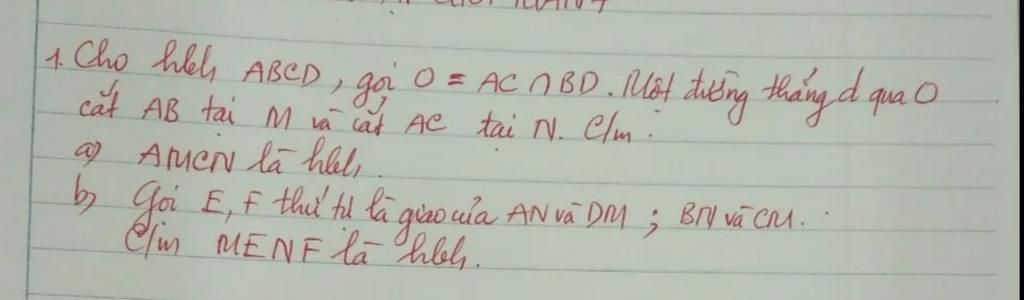 1. Cho hbh ABCD, gọi O = AC ∩ BD. Một đường thẳng d qua O
cắt AB tại M và cắt AC tại N. C/m:
a) AMCN là hbh.
b) Gọi E, F thứ tự là giao của AN và DM; BN và CM.
C/m MENF là hbh.